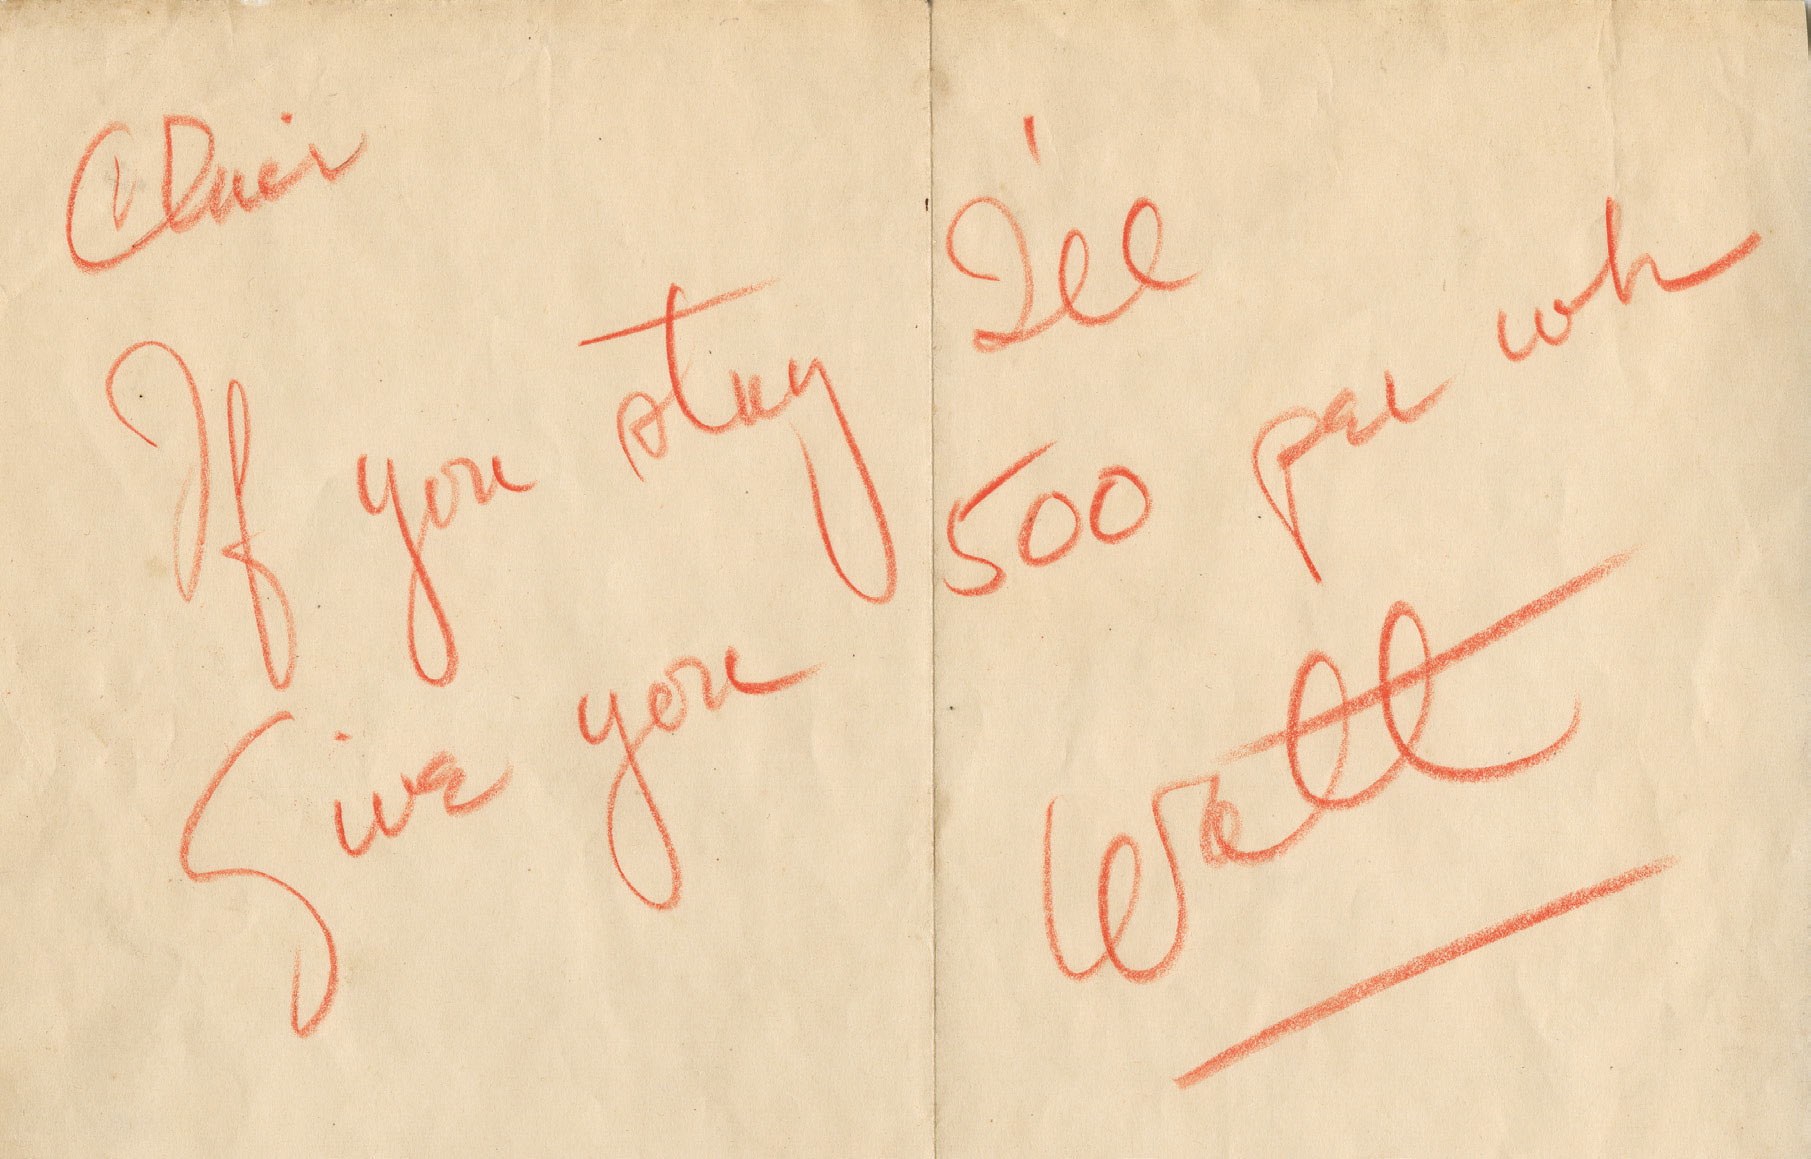 If you stay I'll
Give you 500 per wk
Walt